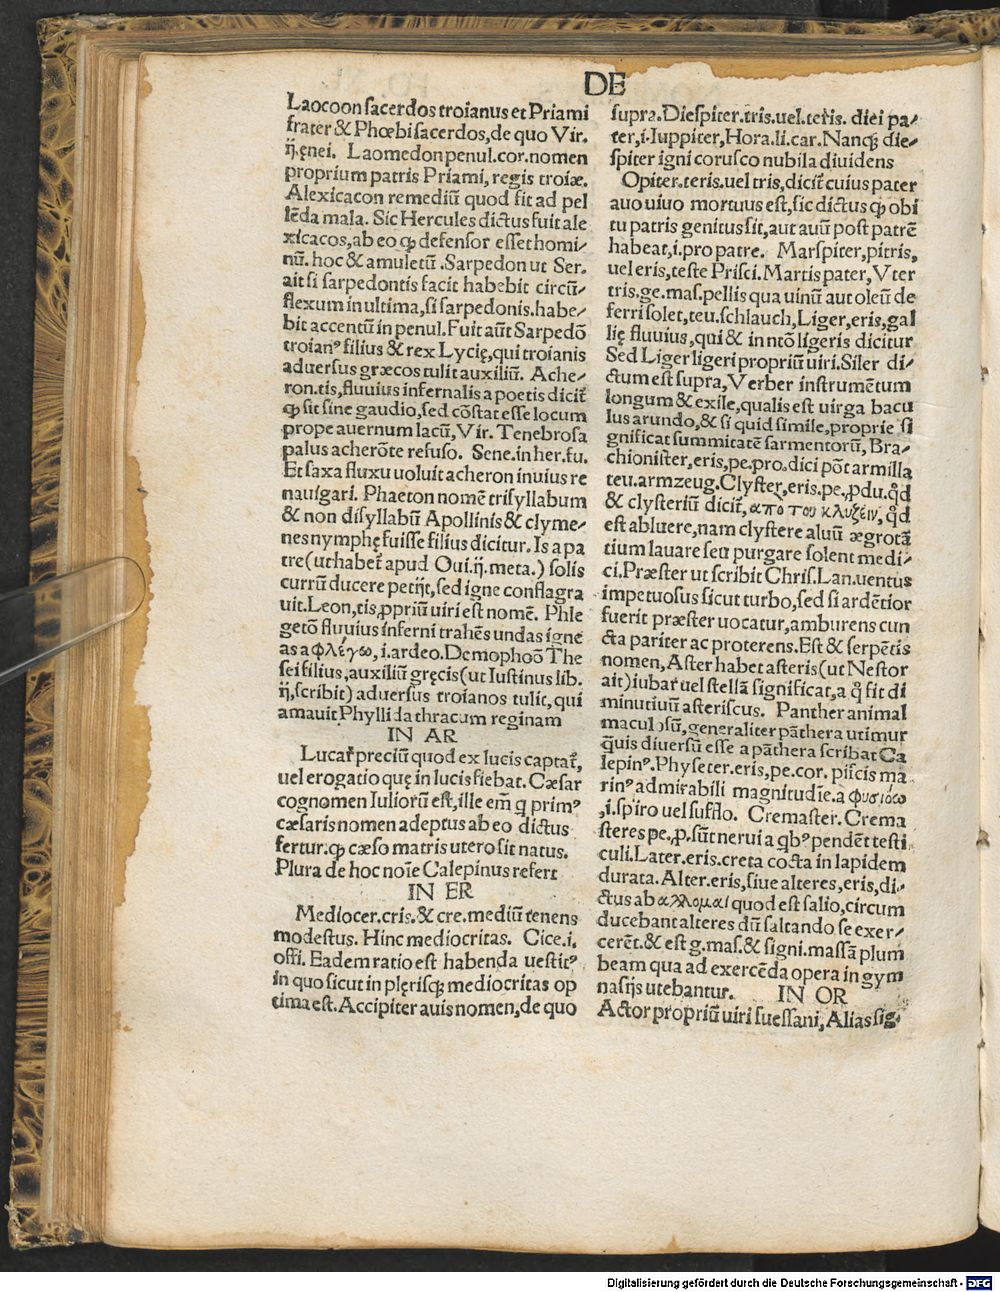 DE
Laocoon sacerdos troianus et Priami
frater & Phœbi sacerdos, de quo Vir.
ij. ęnei. Laomedon penul. cor. nomen
proprium patris Priami, regis troiæ.
Alexicacon remediū quod fit ad pel
lēda mala. Sic Hercules dictus fuit ale
xicacos, ab eo ꝙ defensor esset homi/
nū. hoc & amuletū. Sarpedon ut Ser.
ait si sarpedontis facit habebit circū/
flexum in ultima, si sarpedonis. habe/
bit accentū in penul. Fuit aūt Sarpedō
troianꝰ filius & rex Lycię, qui troianis
aduersus græcos tulit auxiliū. Ache/
ron. tis, fluuius infernalis a poetis dicit᷑
ꝙ sit sine gaudio, sed cōstat esse locum
prope auernum lacū, Vir. Tenebrosa
palus acherōte refuso. Sene. in her. fu.
Et saxa fluxu uoluit acheron inuius re
nauigari. Phaeton nomē trisyllabum
& non disyllabū Apollinis & clyme/
nes nymphę fuisse filius dicitur. Is a pa
tre (ut habet᷑ apud Oui. ij. meta.) solis
currū ducere petijt, sed igne conflagra
uit. Leon, tis, ꝓpriū uiri est nomē. Phle
getō fluuius inferni trahēs undas igne
as a φλέγω, i. ardeo. Demophoō The
sei filius, auxiliū gręcis (ut Iustinus lib.
ij, scribit) aduersus troianos tulit, qui
amauit Phyllida thracum reginam
IN AR
Lucar᷑ preciū quod ex lucis captat᷑,
uel erogatio quę in lucis fiebat. Cæsar
cognomen Iuliorū est, ille em̄ q primꝰ
cæsaris nomen adeptus ab eo dictus
fertur. ꝙ cæso matris utero sit natus.
Plura de hoc noīe Calepinus refert
IN ER
Mediocer. cris. & cre. mediū tenens
modestus. Hinc mediocritas. Cice. i.
offi. Eadem ratio est habenda uestitꝰ
in quo sicut in plęrisqꝫ mediocritas op
tima est. Accipiter auis nomen, de quo
supra. Diespiter. tris. uel. teris. diei pa/
ter, i. Iuppiter, Hora. li. car. Nanqꝫ die/
spiter igni corusco nubila diuidens
Opiter. teris. uel tris, dicit᷑ cuius pater
auo uiuo mortuus est, sic dictus ꝙ obi
tu patris genitus sit, aut auū post patrē
habeat, i. pro patre. Marspiter, pitris,
uel eris, teste Prisci. Martis pater, Vter
tris. ge. mas. pellis qua uinū aut oleū de
ferri solet, teu. schlauch, Liger, eris, gal
lię fluuius, qui & in ntō ligeris dicitur
Sed Liger ligeri propriū uiri. Siler di/
ctum est supra, Verber instrumētum
longum & exile, qualis est uirga bacu
lus arundo, & si quid simile, proprie si
gnificat summitatē sarmentorū, Bra/
chionister, eris, pe. pro. dici pōt armilla
teu. armzeug. Clyster, eris. pe, ꝓdu. qd
& clysteriū dicit᷑, απο του κλυζειν, qd
est abluere, nam clystere aluū ægrotā
tium lauare seu purgare solent medi/
ci. Præster ut scribit Chris. Lan. uentus
impetuosus sicut turbo, sed si ardētior
fuerit præster uocatur, amburens cun
cta pariter ac proterens. Est & serpētis
nomen, Aster habet asteris (ut Nestor
ait) iubar᷑ uel stellā significat, a q fit di
minutiuū asteriscus. Panther animal
maculosū, generaliter pāthera utimur
q̄uis diuersū esse a pāthera scribat Ca
lepinꝰ. Physeter. eris, pe. cor. piscis ma
rinꝰ admirabili magnitudīe. a φυσιόω
, i. spiro uel sufflo. Cremaster. Crema
steres pe. ꝓ. sūt nerui a qbꝰ pendēt testi
culi. Later. eris. creta cocta in lapidem
durata. Alter. eris, siue alteres, eris, di/
ctus ab αλλομαι quod est salio, circum
ducebant alteres dū saltando se exer/
cerēt. & est g. mas. & signi. massā plum
beam qua ad exercēda opera in gym
nasijs utebantur.
IN OR
Actor propriū uiri suessani, Alias sig
Digitalisierung gefördert durch die Deutsche Forschungsgemeinschaft - DFG